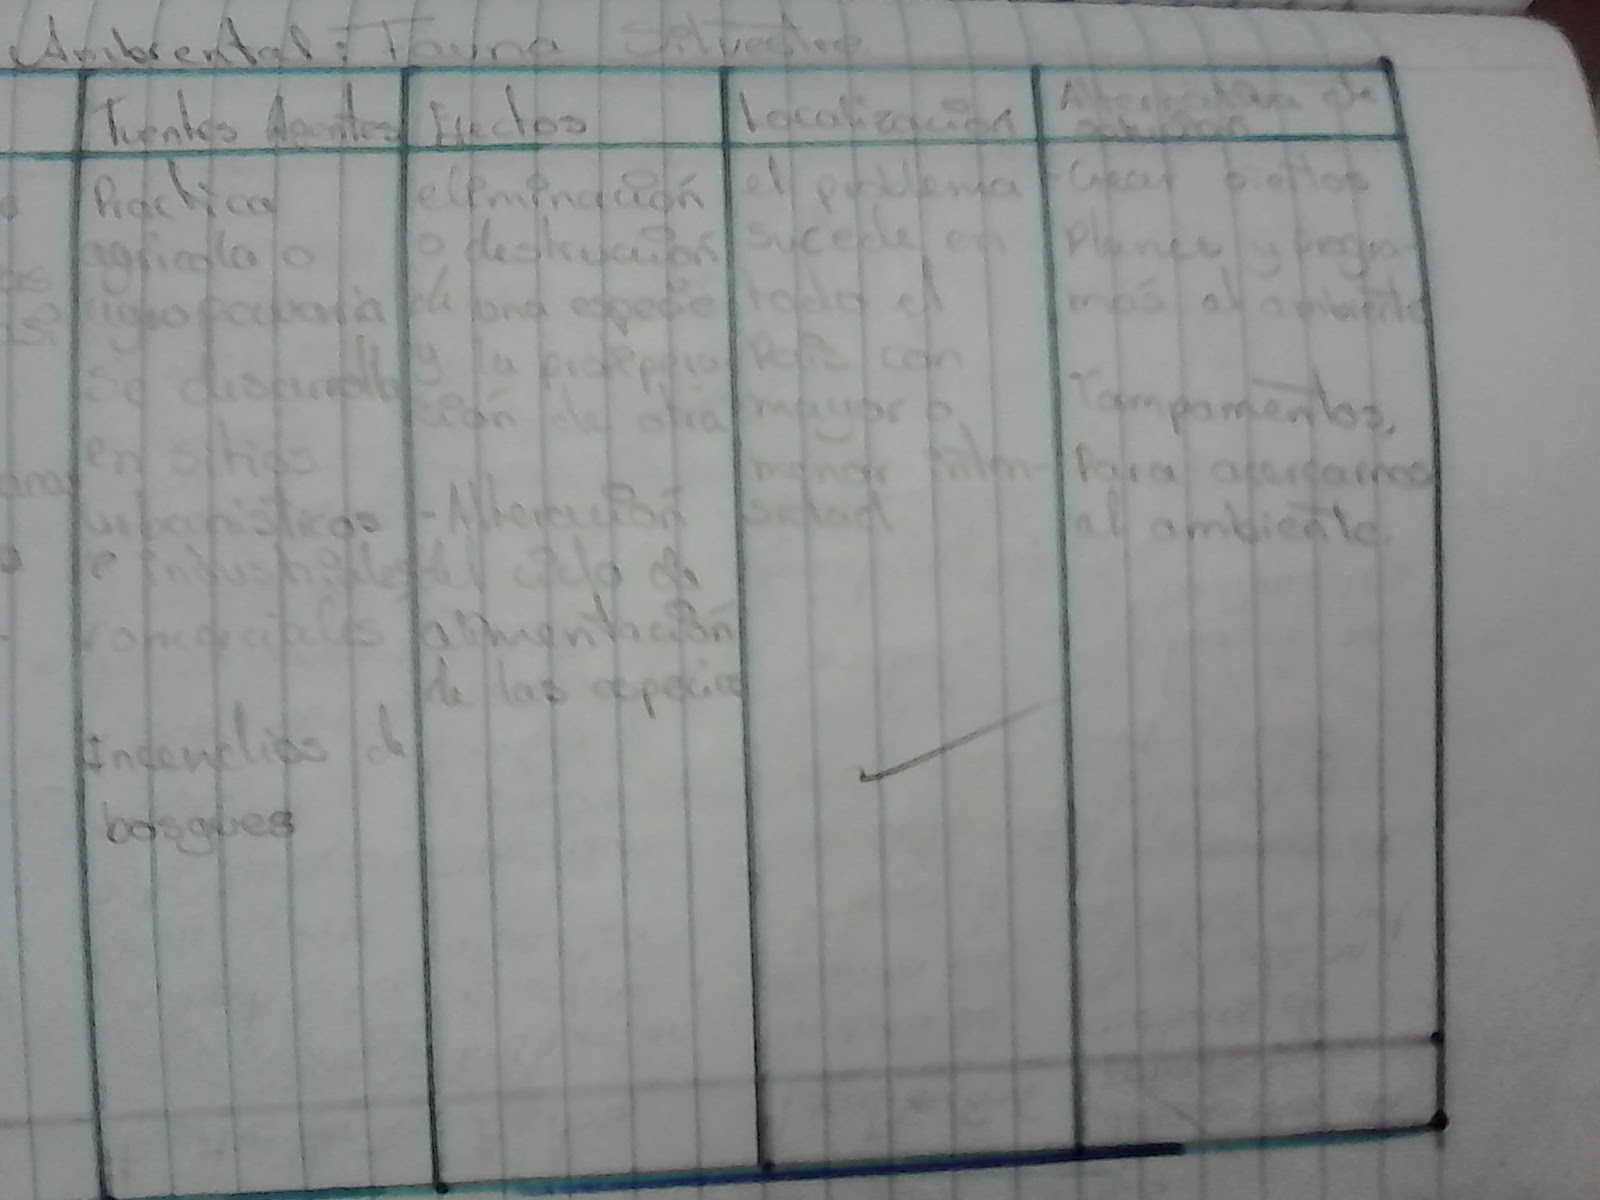 Ambiental: Fauna Silvestre
Fuentes Aportes
Efectos
Localización
Alternativa de
Practica
agricola o
agropecuaria
se desarrolla
en sitios
urbanisticos
e industriales
comerciales
Incendios de
bosques
eliminación
o destrucción
de una especie
y la
ción de otra
-Alteración
del ciclo de
alimentación
de las especie
el problema
sucede en
todo el
País con
mayor o
menor inten-
sidad
-Crear
Planes y progra-
mas al ambiente
Campamentos,
Para acercarnos
al ambiente.